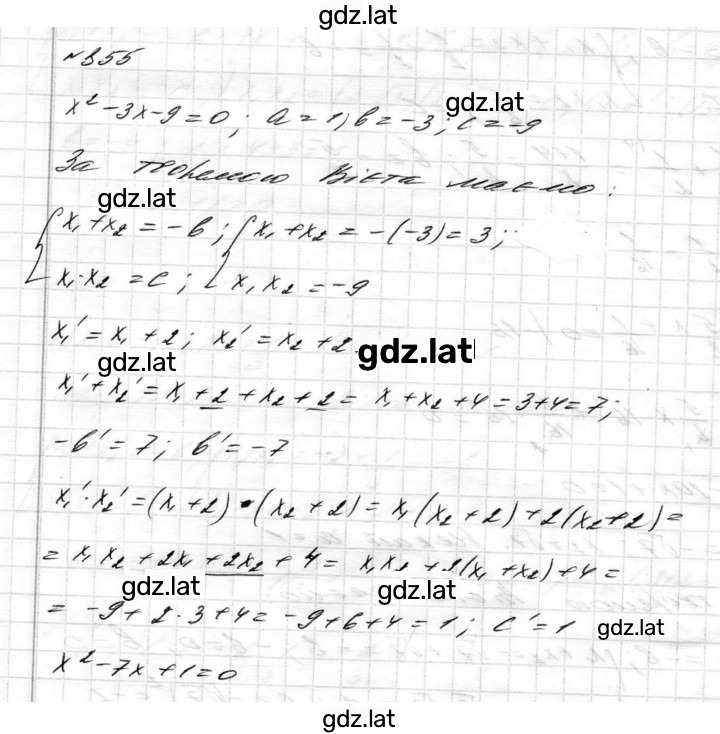 gdz.lat
№855
x² - 3x - 9 = 0; a = 1; b = -3; c = -9
gdz.lat
За теоремою Вієта маємо:
gdz.lat
{ x₁ + x₂ = -b; { x₁ + x₂ = -(-3) = 3;
x₁ · x₂ = c; x₁ x₂ = -9
x₁' = x₁ + 2; x₂' = x₂ + 2
gdz.lat
gdz.lat
x₁' + x₂' = x₁ + 2 + x₂ + 2 = x₁ + x₂ + 4 = 3 + 4 = 7;
-b' = 7; b' = -7
x₁' · x₂' = (x₁ + 2) · (x₂ + 2) = x₁(x₂ + 2) + 2(x₂ + 2) =
= x₁ x₂ + 2x₁ + 2x₂ + 4 = x₁x₂ + 2(x₁ + x₂) + 4 =
gdz.lat gdz.lat
= -9 + 2 · 3 + 4 = -9 + 6 + 4 = 1; c' = 1
gdz.lat
x² - 7x + 1 = 0
gdz.lat